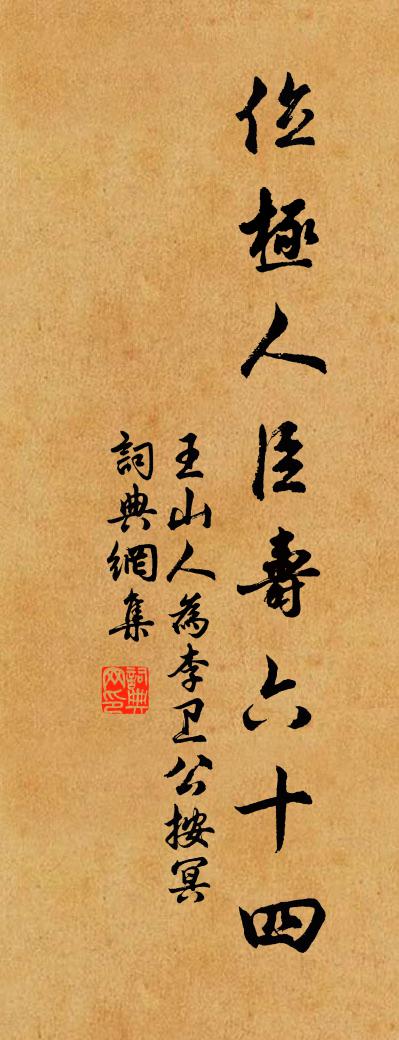 位極人臣壽六十四
王山人為李卫公按冥
詞典網集
詞典网印